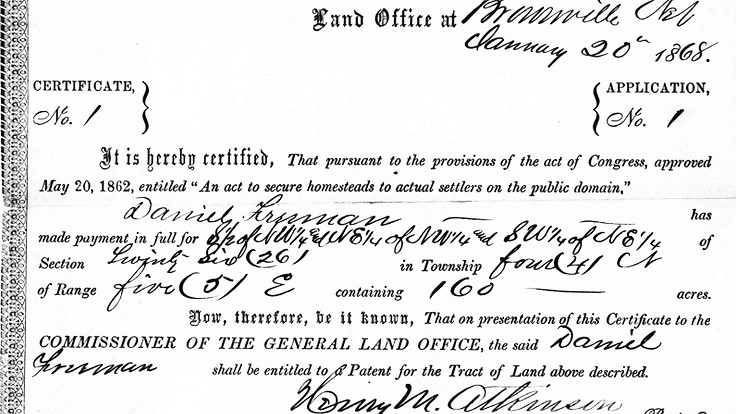 Land Office at Brownville Neb
January 20th 1868.
CERTIFICATE, APPLICATION,
No. 1 No. 1
It is hereby certified, That pursuant to the provisions of the act of Congress, approved
May 20, 1862, entitled "An act to secure homesteads to actual settlers on the public domain,"
Daniel Freeman has
made payment in full for S½ of NW¼ and NE¼ of NW¼ and SW¼ of NE¼ of
Section Twenty Six (26) in Township four (4) N
of Range five (5) E containing 160 acres.
Now, therefore, be it known, That on presentation of this Certificate to the
COMMISSIONER OF THE GENERAL LAND OFFICE, the said Daniel
Freeman shall be entitled to a Patent for the Tract of Land above described.
Henry M. Atkinson